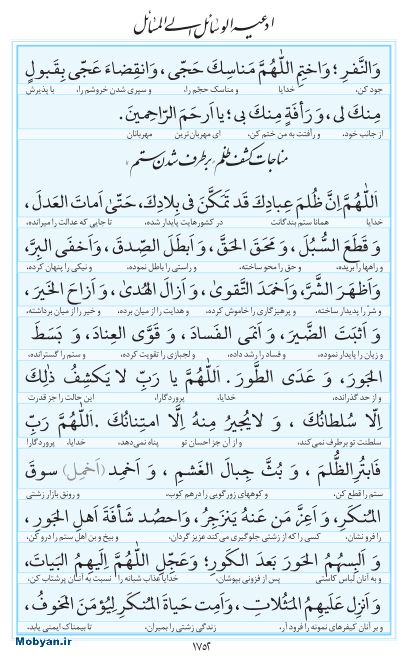 ادعیه الوسائل الی المسائل
وَالنَّفرِ؛ وَاختِمِ اللّٰهُمَّ مَناسِكَ حَجّی، وَانقِضاءَ عَجّی بِقَبولٍ
جود کن، خدایا و مناسک حجّم را، و سپری شدن خروشم را، با پذیرش
مِنكَ لی، وَ رَأفَةٍ مِنكَ بی؛ یا اَرحَمَ الرّاحِمینَ.
از جانب خود، و رأفتت به من ختم کن، ای مهربان‌ترین مهربانان
مناجات کشف ظلم؛ برطرف شدن ستم؛
اَللّٰهُمَّ اِنَّ ظُلمَ عِبادِكَ قَد تَمَكَّنَ فی بِلادِكَ، حَتّیٰ اَماتَ العَدلَ،
خدایا همانا ستم بندگانت در کشورهایت پایدار شده، تا جایی که عدالت را میرانده،
وَ قَطَعَ السُّبُلَ، وَ مَحَقَ الحَقَّ، وَ اَبطَلَ الصِّدقَ، وَ اَخفَی البِرَّ،
و راهها را بریده، و حق را محو ساخته، و راستی را باطل نموده، و نیکی را پنهان کرده،
وَ اَظهَرَ الشَّرَّ، وَ اَخمَدَ التَّقویٰ، وَ اَزالَ الهُدیٰ، وَ اَزاحَ الخَیرَ،
و شرّ را پدیدار ساخته، و پرهیزگاری را خاموش کرده، و هدایت را از میان برده، و خیر را از میان برداشته،
وَ اَثبَتَ الضَّیرَ، وَ اَنمَی الفَسادَ، وَ قَوَّی العِنادَ، وَ بَسَطَ
و زیان را پایدار نموده، و فساد را رشد داده، و لجبازی را تقویت کرده، و ستم را گسترانده،
الجَورَ، وَ عَدَی الطَّورَ. اَللّٰهُمَّ یا رَبِّ لا یَكشِفُ ذٰلِكَ
و از حد گذرانده، خدایا، پروردگارا، این حالت را جز قدرت
اِلّا سُلطانُكَ، وَ لایُجیرُ مِنهُ اِلَّا امتِنانُكَ. اَللّٰهُمَّ رَبِّ
سلطنت تو برطرف نمی‌کند، و از آن جز احسان تو پناه نمی‌دهد، خدایا، پروردگارا
فَابتُرِ الظُّلمَ، وَ بُثَّ جِبالَ الغَشمِ، وَ اَخمِد (اَخمِل) سوقَ
ستم را قطع کن، و کوههای زورگویی را درهم کوب، و رونق بازار زشتی
المُنكَرِ، وَ اَعِزَّ مَن عَنهُ یَنزَجِرُ، وَ احصُد شَأفَةَ اَهلِ الجَورِ،
را فرو نشان، کسی را که از زشتی جلوگیری می‌کند عزیز گردان، و بیخ و بن اهل ستم را درو کن،
وَ اَلبِسهُمُ الحَورَ بَعدَ الكَورِ؛ وَ عَجِّلِ اللّٰهُمَّ اِلَیهِمُ البَیاتَ،
و به آنان لباس کاستی پس از فزونی بپوشان، خدایا عذاب شبانه را نسبت به آنان پرشتاب کن،
وَ اَنزِل عَلَیهِمُ المَثُلاتِ، وَ اَمِت حَیاةَ المُنكَرِ لِیُؤمَنَ المَخوفُ،
و بر آنان کیفرهای نمونه را فرود آر، زندگی زشتی را بمیران، تا بیمناک ایمنی یابد،
۱۷۵۲
Mobyan.ir